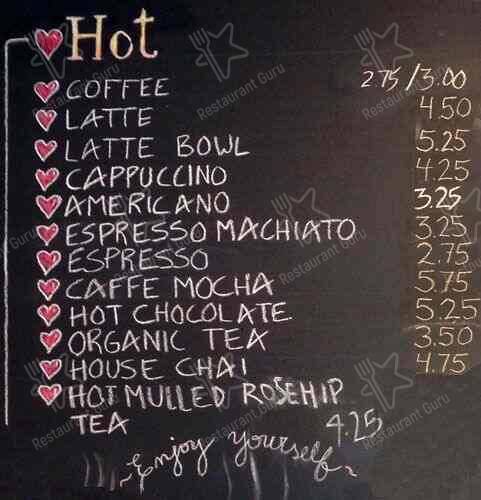 Hot
COFFEE 275/3.00
LATTE 4.50
LATTE BOWL 5.25
CAPPUCCINO 4.25
AMERICANO 3.25
ESPRESSO MACHIATO 3.25
ESPRESSO 2.75
CAFFE MOCHA 5.75
HOT CHOCOLATE 5.25
ORGANIC TEA 3.50
HOUSE CHAI 4.75
HOT MULLED ROSEHIP
TEA 4.25
~Enjoy yourself~
Restaurant Guru